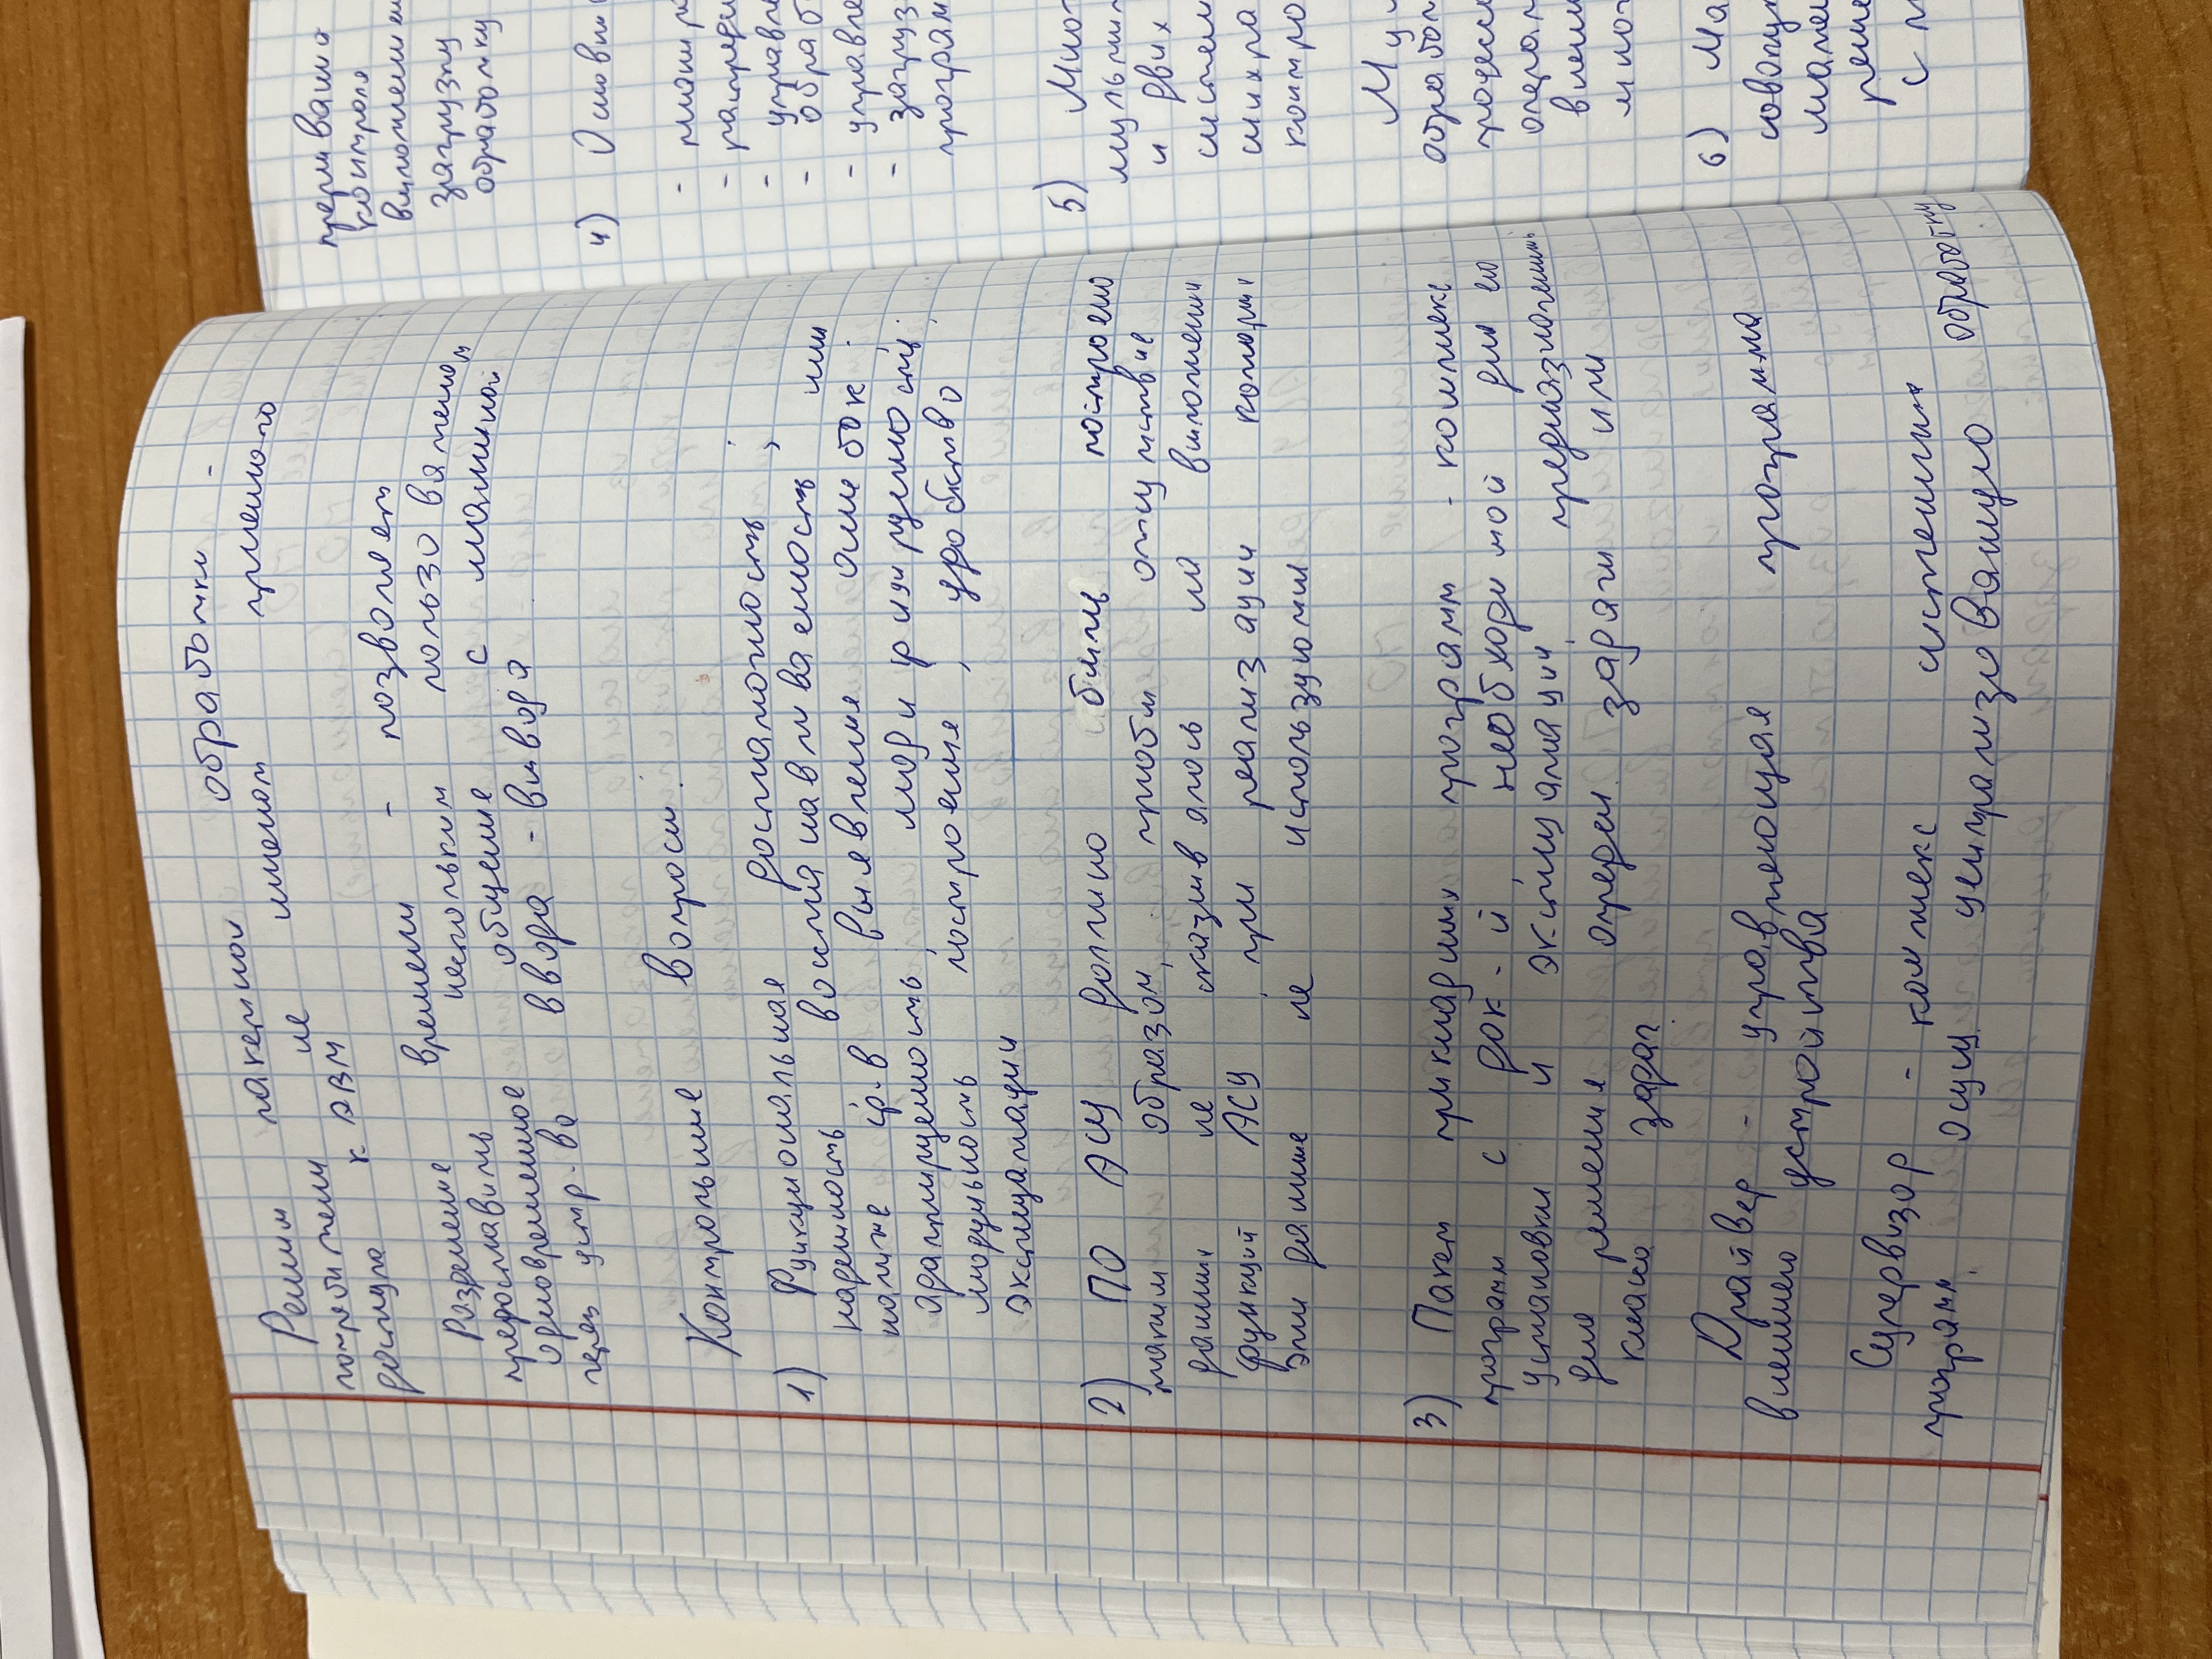 Режим пакетной обработки -
потребители не имеют прямого
доступа к ЭВМ
Разделение времени - позволяет
предоставить нескольким пользователям
одновременное общение с машиной
через устр-ва ввода - вывода
Контрольные вопросы:
1) Функциональная достаточность;
надежность восстанавливаемость; или
наличие ср-в выявления ошибок;
адаптируемость; модифицируемость;
модульность построения, удобство
эксплуатации
2) ПО АСУ должно быть построено
таким образом, чтобы отсутствие
данных не сказывалось на выполнении
функций АСУ при реализации которых
эти данные не используются
3) Пакет прикладных программ - комплекс
программ с док-й необходимой для его
установки и эксплуатации предназначенный
для решения определ задачи или
класса задач.
Драйвер - управляющая программа
внешнего устройства
Супервизор - комплекс истемных
программ, осущ. централизованную обработку
прерываний
контроля
загрузку
обработку
4) Основны
-
-
- управле
обраб
- управле
- загруз
програм
5)
и двух
систем
контро
обработ
процесс
операт
6) Ма
совокуп
реше
с